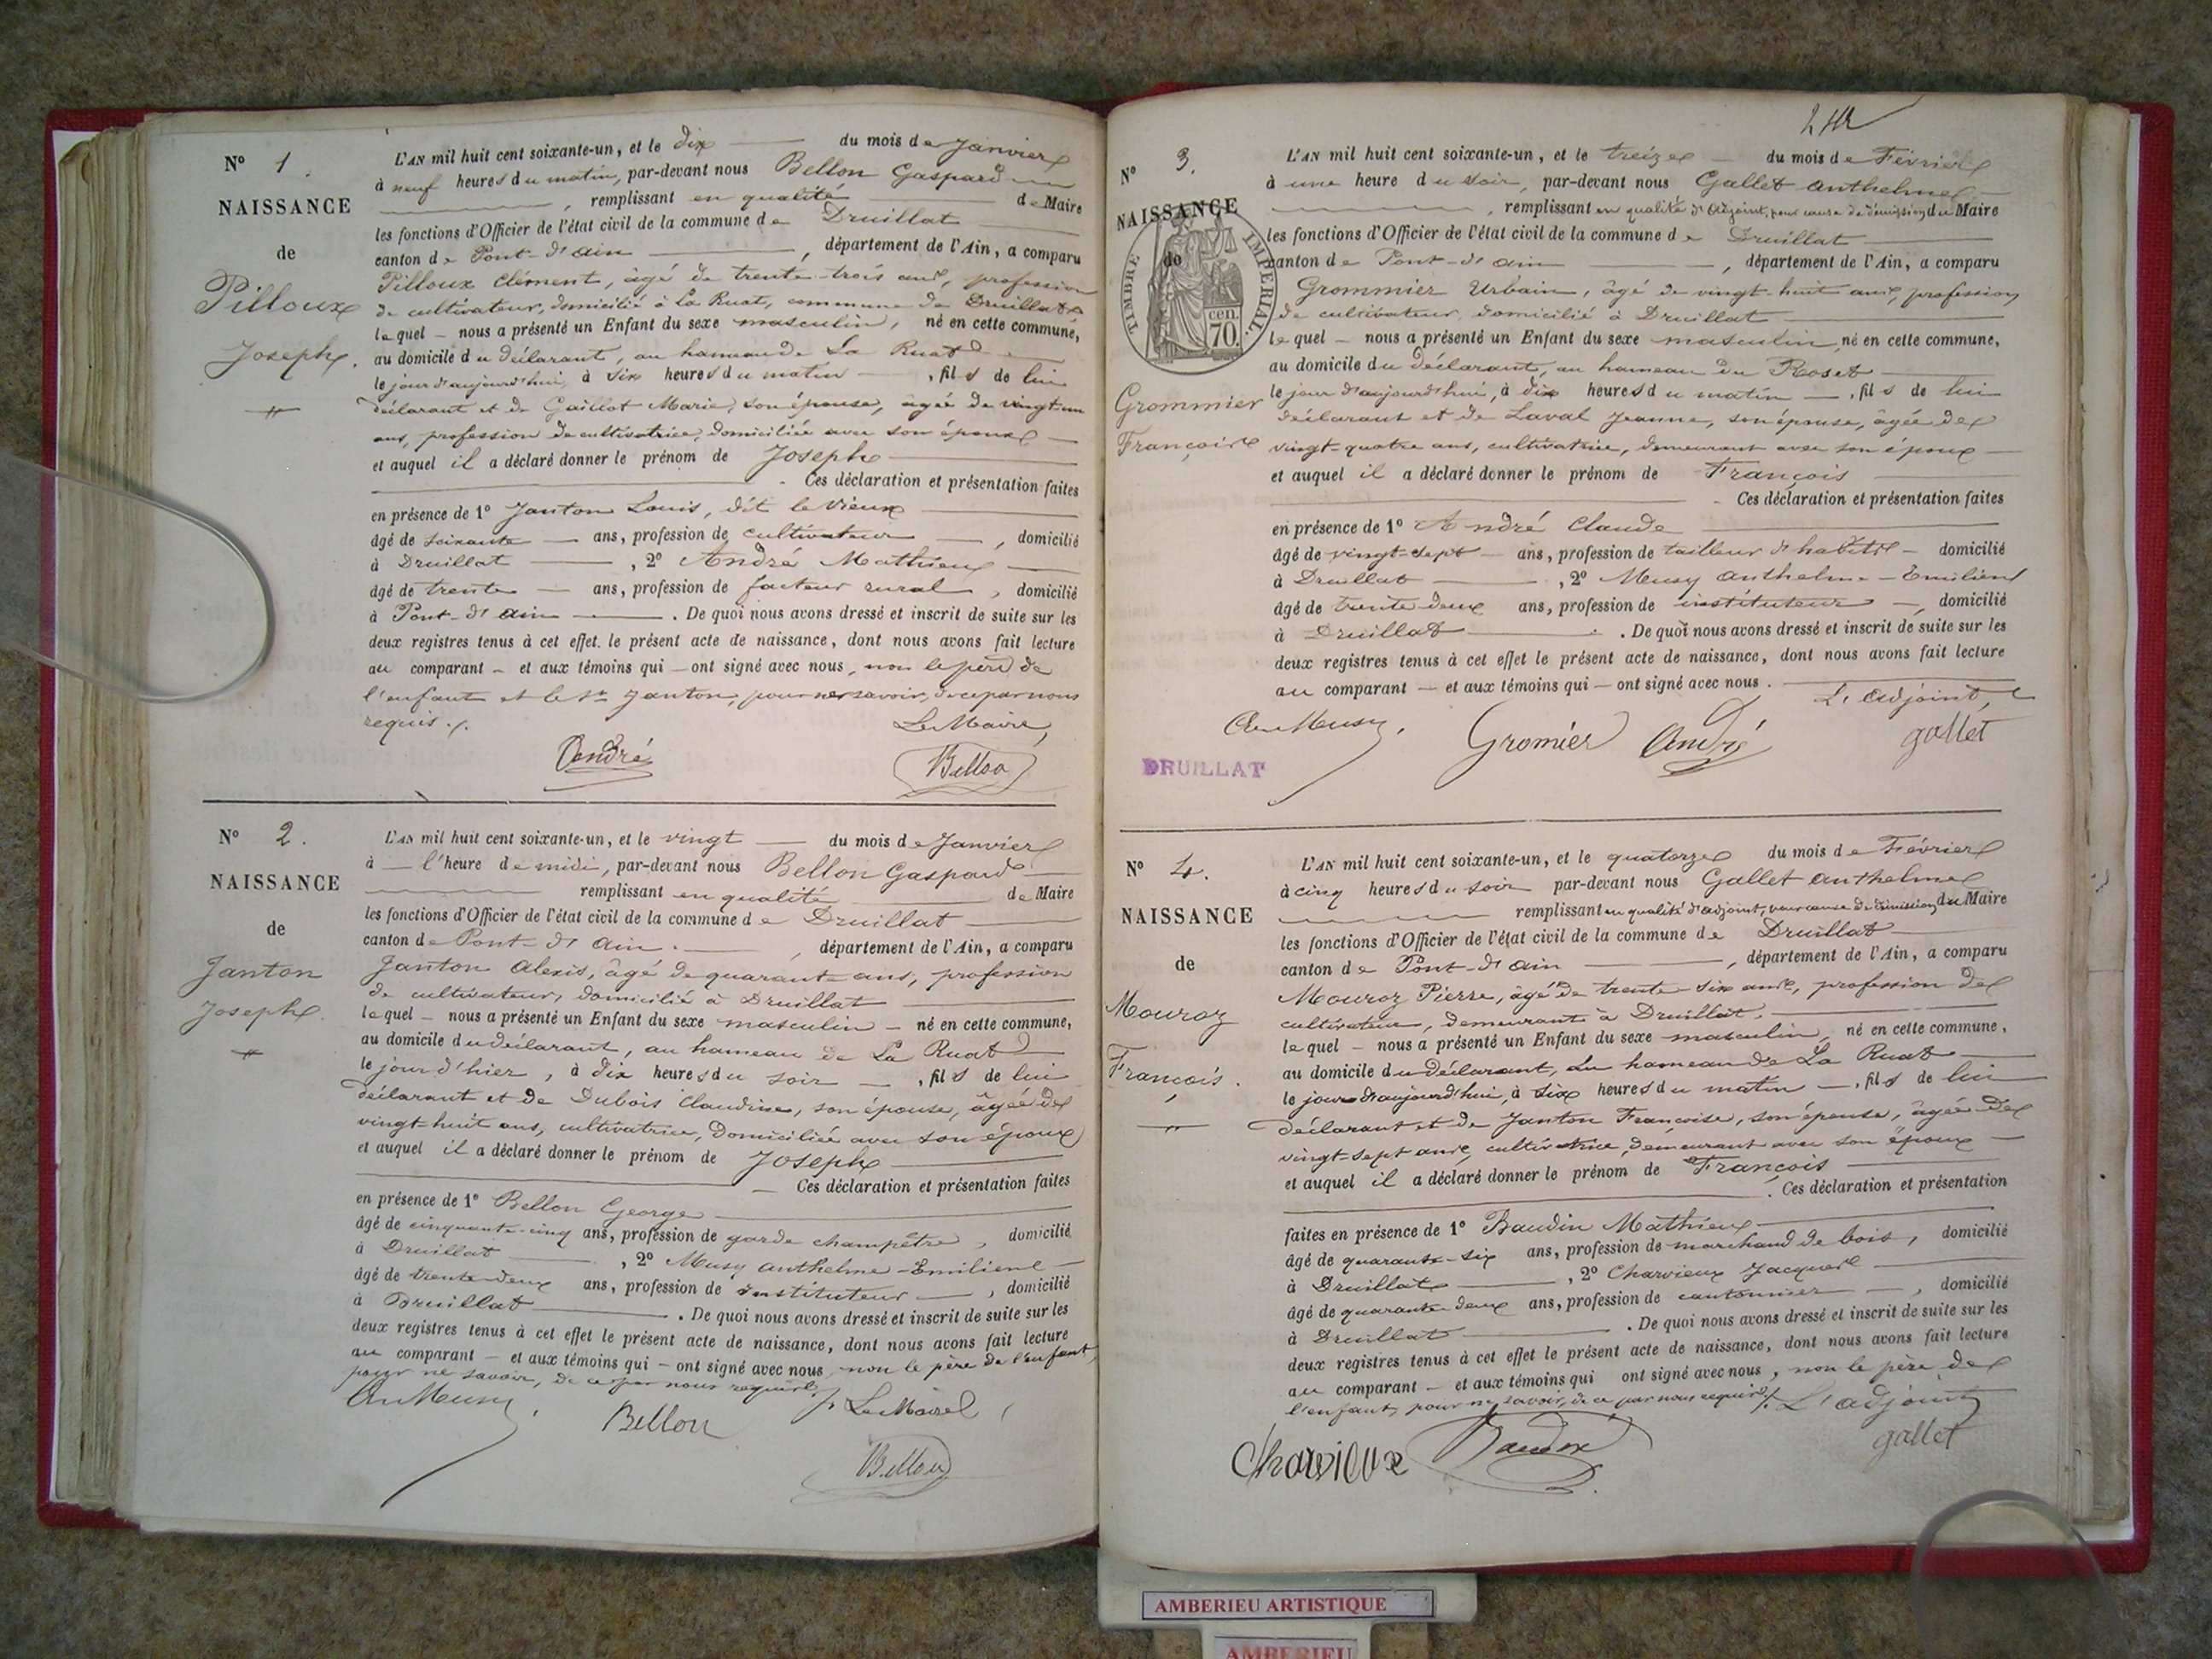 N° 1.
NAISSANCE
de
Pilloux
Joseph.
L'AN mil huit cent soixante-un, et le dix du mois de Janvier
à neuf heures du matin, par-devant nous Bellon Gaspard
, remplissant en qualité de Maire
les fonctions d'Officier de l'état civil de la commune de Druillat
canton de Pont-d'Ain, département de l'Ain, a comparu
Pilloux Clément, âgé de trente-trois ans, profession
de cultivateur, domicilié à la Ruat, commune de Druillat
lequel nous a présenté un Enfant du sexe masculin, né en cette commune,
au domicile du déclarant, au hameau de La Ruat
le jour d'aujourd'hui, à six heures du matin, fils de lui
déclarant et de Gaillot Marie, son épouse, âgée de vingt-un
ans, profession de cultivatrice, domiciliée avec son époux
et auquel il a déclaré donner le prénom de Joseph
Ces déclaration et présentation faites
en présence de 1° Janton Louis, dit le Vieux
âgé de soixante ans, profession de cultivateur, domicilié
à Druillat, 2° André Mathieu
âgé de trente ans, profession de facteur rural, domicilié
à Pont-d'Ain. De quoi nous avons dressé et inscrit de suite sur les
deux registres tenus à cet effet. le présent acte de naissance, dont nous avons fait lecture
au comparant et aux témoins qui ont signé avec nous, non le père de
l'enfant et le sr Janton, pour ne savoir, de ce par nous
requis.
Le Maire,
André
Bellon
N° 2.
NAISSANCE
de
Janton
Joseph.
L'AN mil huit cent soixante-un, et le vingt du mois de Janvier
à l'heure de midi, par-devant nous Bellon Gaspard
remplissant en qualité de Maire
les fonctions d'Officier de l'état civil de la commune de Druillat
canton de Pont-d'Ain, département de l'Ain, a comparu
Janton Alexis, âgé de quarante ans, profession
de cultivateur, domicilié à Druillat
lequel nous a présenté un Enfant du sexe masculin né en cette commune,
au domicile du déclarant, au hameau de La Ruat
le jour d'hier, à dix heures du soir, fils de lui
déclarant et de Dubois Claudine, son épouse, âgée de
vingt-huit ans, cultivatrice, domiciliée avec son époux
et auquel il a déclaré donner le prénom de Joseph
Ces déclaration et présentation faites
en présence de 1° Bellon George
âgé de cinquante-cinq ans, profession de garde champêtre, domicilié
à Druillat, 2° Musy Anthelme-Emilien
âgé de trente-deux ans, profession de instituteur, domicilié
à Druillat. De quoi nous avons dressé et inscrit de suite sur les
deux registres tenus à cet effet le présent acte de naissance, dont nous avons fait lecture
au comparant et aux témoins qui ont signé avec nous, non le père de l'enfant,
pour ne savoir, de ce par nous requis.
Le Maire
Musy
Bellon
Bellon
N° 3.
NAISSANCE
de
TIMBRE IMPERIAL.
cen.
70.
Grommier
François
L'AN mil huit cent soixante-un, et le treize du mois de Février
à une heure du soir, par-devant nous Gallet Anthelme
, remplissant en qualité d'adjoint, pour cause de démission du Maire
les fonctions d'Officier de l'état civil de la commune de Druillat
canton de Pont-d'Ain, département de l'Ain, a comparu
Grommier Urbain, âgé de vingt-huit ans, profession
de cultivateur, domicilié à Druillat
lequel nous a présenté un Enfant du sexe masculin, né en cette commune,
au domicile du déclarant, au hameau du Roset
le jour d'aujourd'hui, à dix heures du matin, fils de lui
déclarant et de Laval Jeanne, son épouse, âgée de
vingt-quatre ans, cultivatrice, demeurant avec son époux
et auquel il a déclaré donner le prénom de François
Ces déclaration et présentation faites
en présence de 1° André Claude
âgé de vingt-sept ans, profession de tailleur d'habits domicilié
à Druillat, 2° Musy Anthelme-Emilien
âgé de trente deux ans, profession de instituteur, domicilié
à Druillat. De quoi nous avons dressé et inscrit de suite sur les
deux registres tenus à cet effet le présent acte de naissance, dont nous avons fait lecture
au comparant et aux témoins qui ont signé avec nous.
L'adjoint,
Musy
Gromier
André
gallet
DRUILLAT
N° 4.
NAISSANCE
de
Mouroz
François.
L'AN mil huit cent soixante-un, et le quatorze du mois de Février
à cinq heures du soir par-devant nous Gallet Anthelme
remplissant en qualité d'adjoint, pour cause de démission du Maire
les fonctions d'Officier de l'état civil de la commune de Druillat
canton de Pont-d'Ain, département de l'Ain, a comparu
Mouroz Pierre, âgé de trente-six ans, profession de
cultivateur, demeurant à Druillat.
lequel nous a présenté un Enfant du sexe masculin, né en cette commune,
au domicile du déclarant, au hameau de La Ruat
le jour d'aujourd'hui, à six heures du matin, fils de lui
déclarant et de Janton Françoise, son épouse, âgée de
vingt-sept ans, cultivatrice, demeurant avec son époux
et auquel il a déclaré donner le prénom de François
. Ces déclaration et présentation
faites en présence de 1° Baudin Mathieu
âgé de quarante-six ans, profession de marchand de bois, domicilié
à Druillat, 2° Charvieux Jacques
âgé de quarante deux ans, profession de cantonnier, domicilié
à Druillat. De quoi nous avons dressé et inscrit de suite sur les
deux registres tenus à cet effet le présent acte de naissance, dont nous avons fait lecture
au comparant et aux témoins qui ont signé avec nous, non le père de
l'enfant, pour ne savoir, de ce par nous requis. L'adjoint
Charvieux
Baudin
gallet
AMBERIEU ARTISTIQUE
AMBERIEU